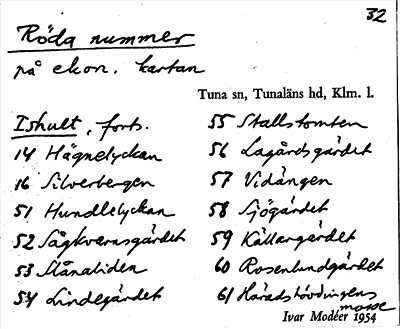 32
Röda nummer
på ekon. kartan
Tuna sn, Tunaläns hd, Klm. l.
Ishult, forts.
14 Hägnelyckan
16 Silverbergen
51 Hundlelyckan
52 Sågkvarnsgärdet
53 Slånaliden
54 Lindegärdet
55 Stallstomten
56 Lagårdsgärdet
57 Vidängen
58 Sjögärdet
59 Källargärdet
60 Rosenlundgärdet
61 Häradshövdingens
mosse
Ivar Modéer 1954